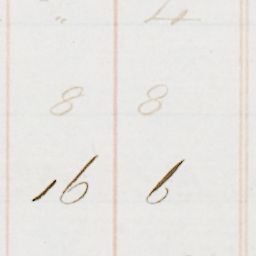 " 4
8 8
16 6